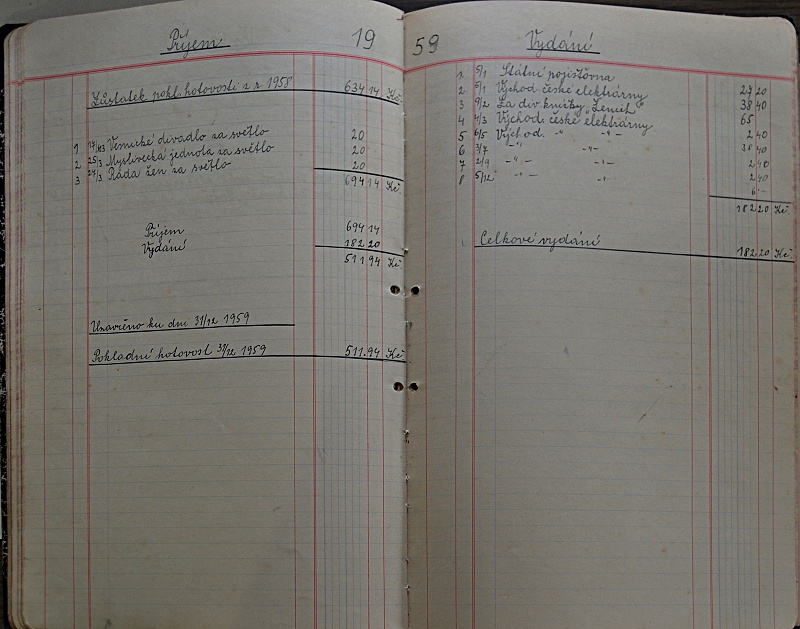 Příjem 19
Zůstatek pokl. hotovosti z r. 1958 634 14 Kč
1 Věmické divadlo za světlo 20
2 25/3 Myslivecká jednota za světlo 20
3 27/3 Rada žen za světlo 20
694 14 Kč
Příjem 694 14
Vydání 182 20
511 94 Kč
Uzavřeno ku dni 31/12 1959
Pokladní hotovost 31/12 1959 511.94 Kč
59 Vydání
1 5/1 Státní pojišťovna 27 20
2 5/1 Východ české elektrárny 38 40
3 9/2 Za div knížky "Zenit" 65
4 4/3 Východ. české elektrárny 2 40
5 6/5 Východ. -"- -"- 38 40
6 3/7 -"- -"- 2 40
7 2/9 -"- -"- 2 40
8 5/12 -"- -"- 6 -
182 20 Kč
Celkové vydání 182 20 Kč